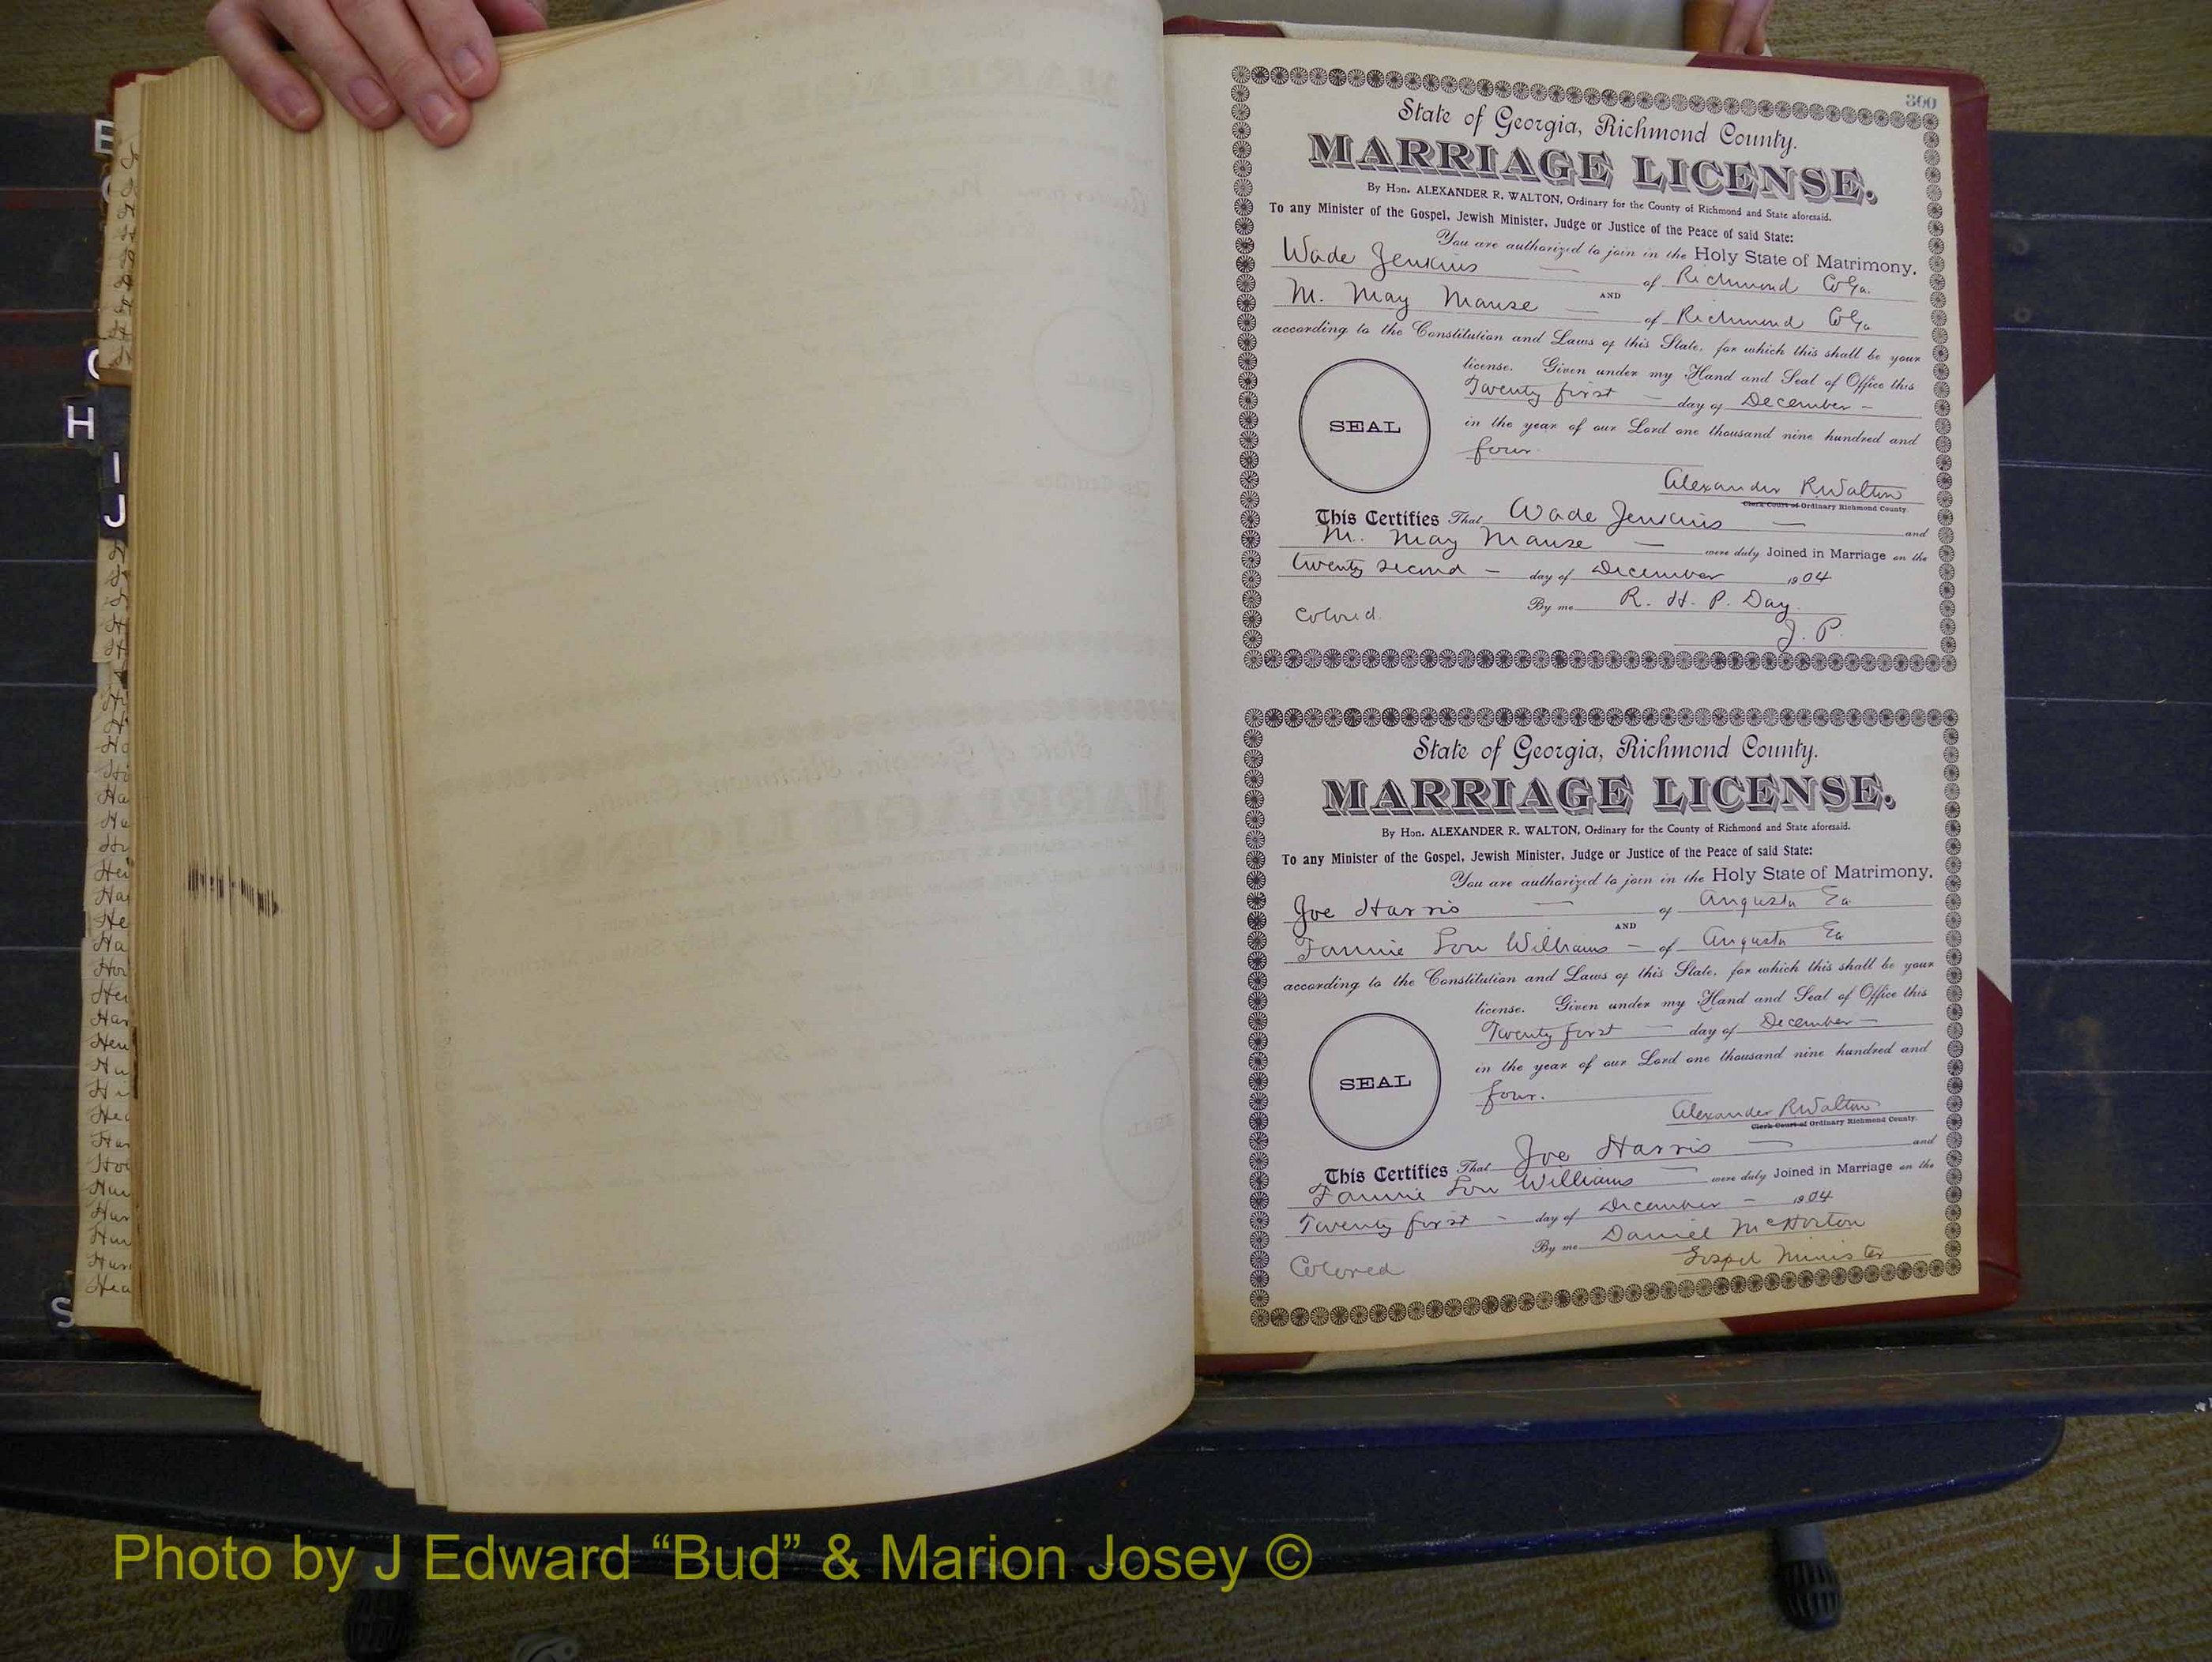 300
State of Georgia, Richmond County.
MARRIAGE LICENSE.
By Hon. ALEXANDER R. WALTON, Ordinary for the County of Richmond and State aforesaid.
To any Minister of the Gospel, Jewish Minister, Judge or Justice of the Peace of said State:
You are authorized to join in the Holy State of Matrimony,
Wade Jenkins — of Richmond Co Ga.
AND
M. May Mause — of Richmond Co Ga
according to the Constitution and Laws of this State, for which this shall be your
license. Given under my Hand and Seal of Office this
Twenty first — day of December —
in the year of our Lord one thousand nine hundred and
four
SEAL
Alexander R Walton
Clerk Court of Ordinary Richmond County.
This Certifies That Wade Jenkins — and
M. May Mause — were duly Joined in Marriage on the
twenty second — day of December 1904
By me R. H. P. Day.
J. P.
Colored.
State of Georgia, Richmond County.
MARRIAGE LICENSE.
By Hon. ALEXANDER R. WALTON, Ordinary for the County of Richmond and State aforesaid.
To any Minister of the Gospel, Jewish Minister, Judge or Justice of the Peace of said State:
You are authorized to join in the Holy State of Matrimony,
Joe Harris — of Augusta Ga
AND
Fannie Lou Williams — of Augusta Ga
according to the Constitution and Laws of this State, for which this shall be your
license. Given under my Hand and Seal of Office this
Twenty first — day of December —
in the year of our Lord one thousand nine hundred and
four.
SEAL
Alexander R Walton
Clerk Court of Ordinary Richmond County.
This Certifies That Joe Harris — and
Fannie Lou Williams — were duly Joined in Marriage on the
Twenty first — day of December — 1904
By me Daniel McHorton
Gospel Minister
Colored
E
H
I
J
S
Photo by J Edward “Bud” & Marion Josey ©